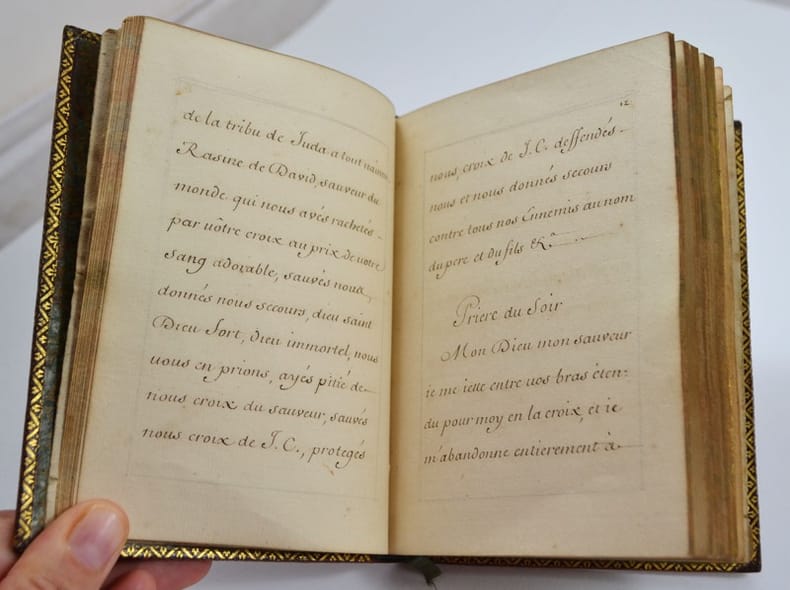 de la tribu de Juda a tout vaincu
Rasine de David, sauveur du
monde qui nous avés rachetés -
par vôtre croix au prix de votre
sang adorable, sauvés nous,
donnés nous secours, dieu saint
Dieu fort, dieu immortel, nous
vous en prions, ayés pitié de
nous croix du sauveur, sauvés
nous croix de J. C., protegés
12
nous, croix de J. C. deffendés -
nous et nous donnés secours
contre tous nos Ennemis au nom
du pere et du fils &c.a
Priere du Soir
Mon Dieu mon sauveur
ie me iette entre vos bras éten:
du pour moy en la croix, et ie
m'abandonne entierement à